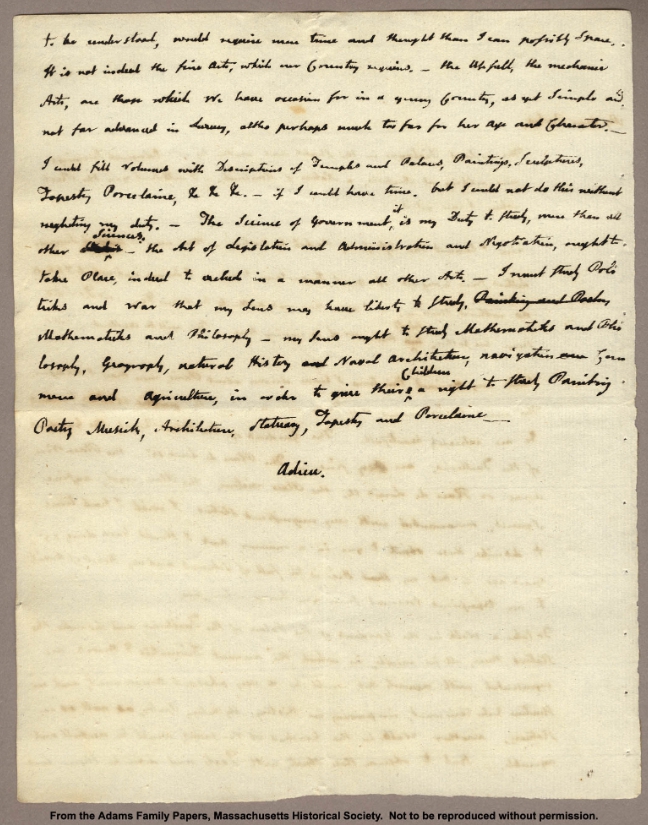 to be understood, would require more time and thought than I can possibly Spare.
It is not indeed the fine Arts, which our Country requires. — the Usefull, the mechanic
Arts, are those which We have occasion for in a young Country, as yet Simple and
not far advanced in Luxury, altho perhaps much too far for her Age and Character. —
I could fill Volumes with Descriptions of Temples and Palaces, Paintings, Sculptures,
Tapestry Porcelaine, &c &c &c. — if I could have time. but I could not do this without
neglecting my duty. — The Science of Government, it is my Duty to Study, more than all
other Sciences. — the Art of Legislation and Administration and Negotiation, ought to
take Place, indeed to exclude in a manner all other Arts. — I must Study Poli
ticks and War that my Sons may have liberty to Study, Painting and Poetry
Mathematicks and Philosophy — my Sons ought to Study Mathematicks and Philo
losophy, Geography, natural History and Naval Architecture, navigation and Com
merce and Agriculture, in order to give their Children a right to Study Painting
Poetry Musick, Architecture, Statuary, Tapestry and Porcelaine —
Adieu.
From the Adams Family Papers, Massachusetts Historical Society. Not to be reproduced without permission.